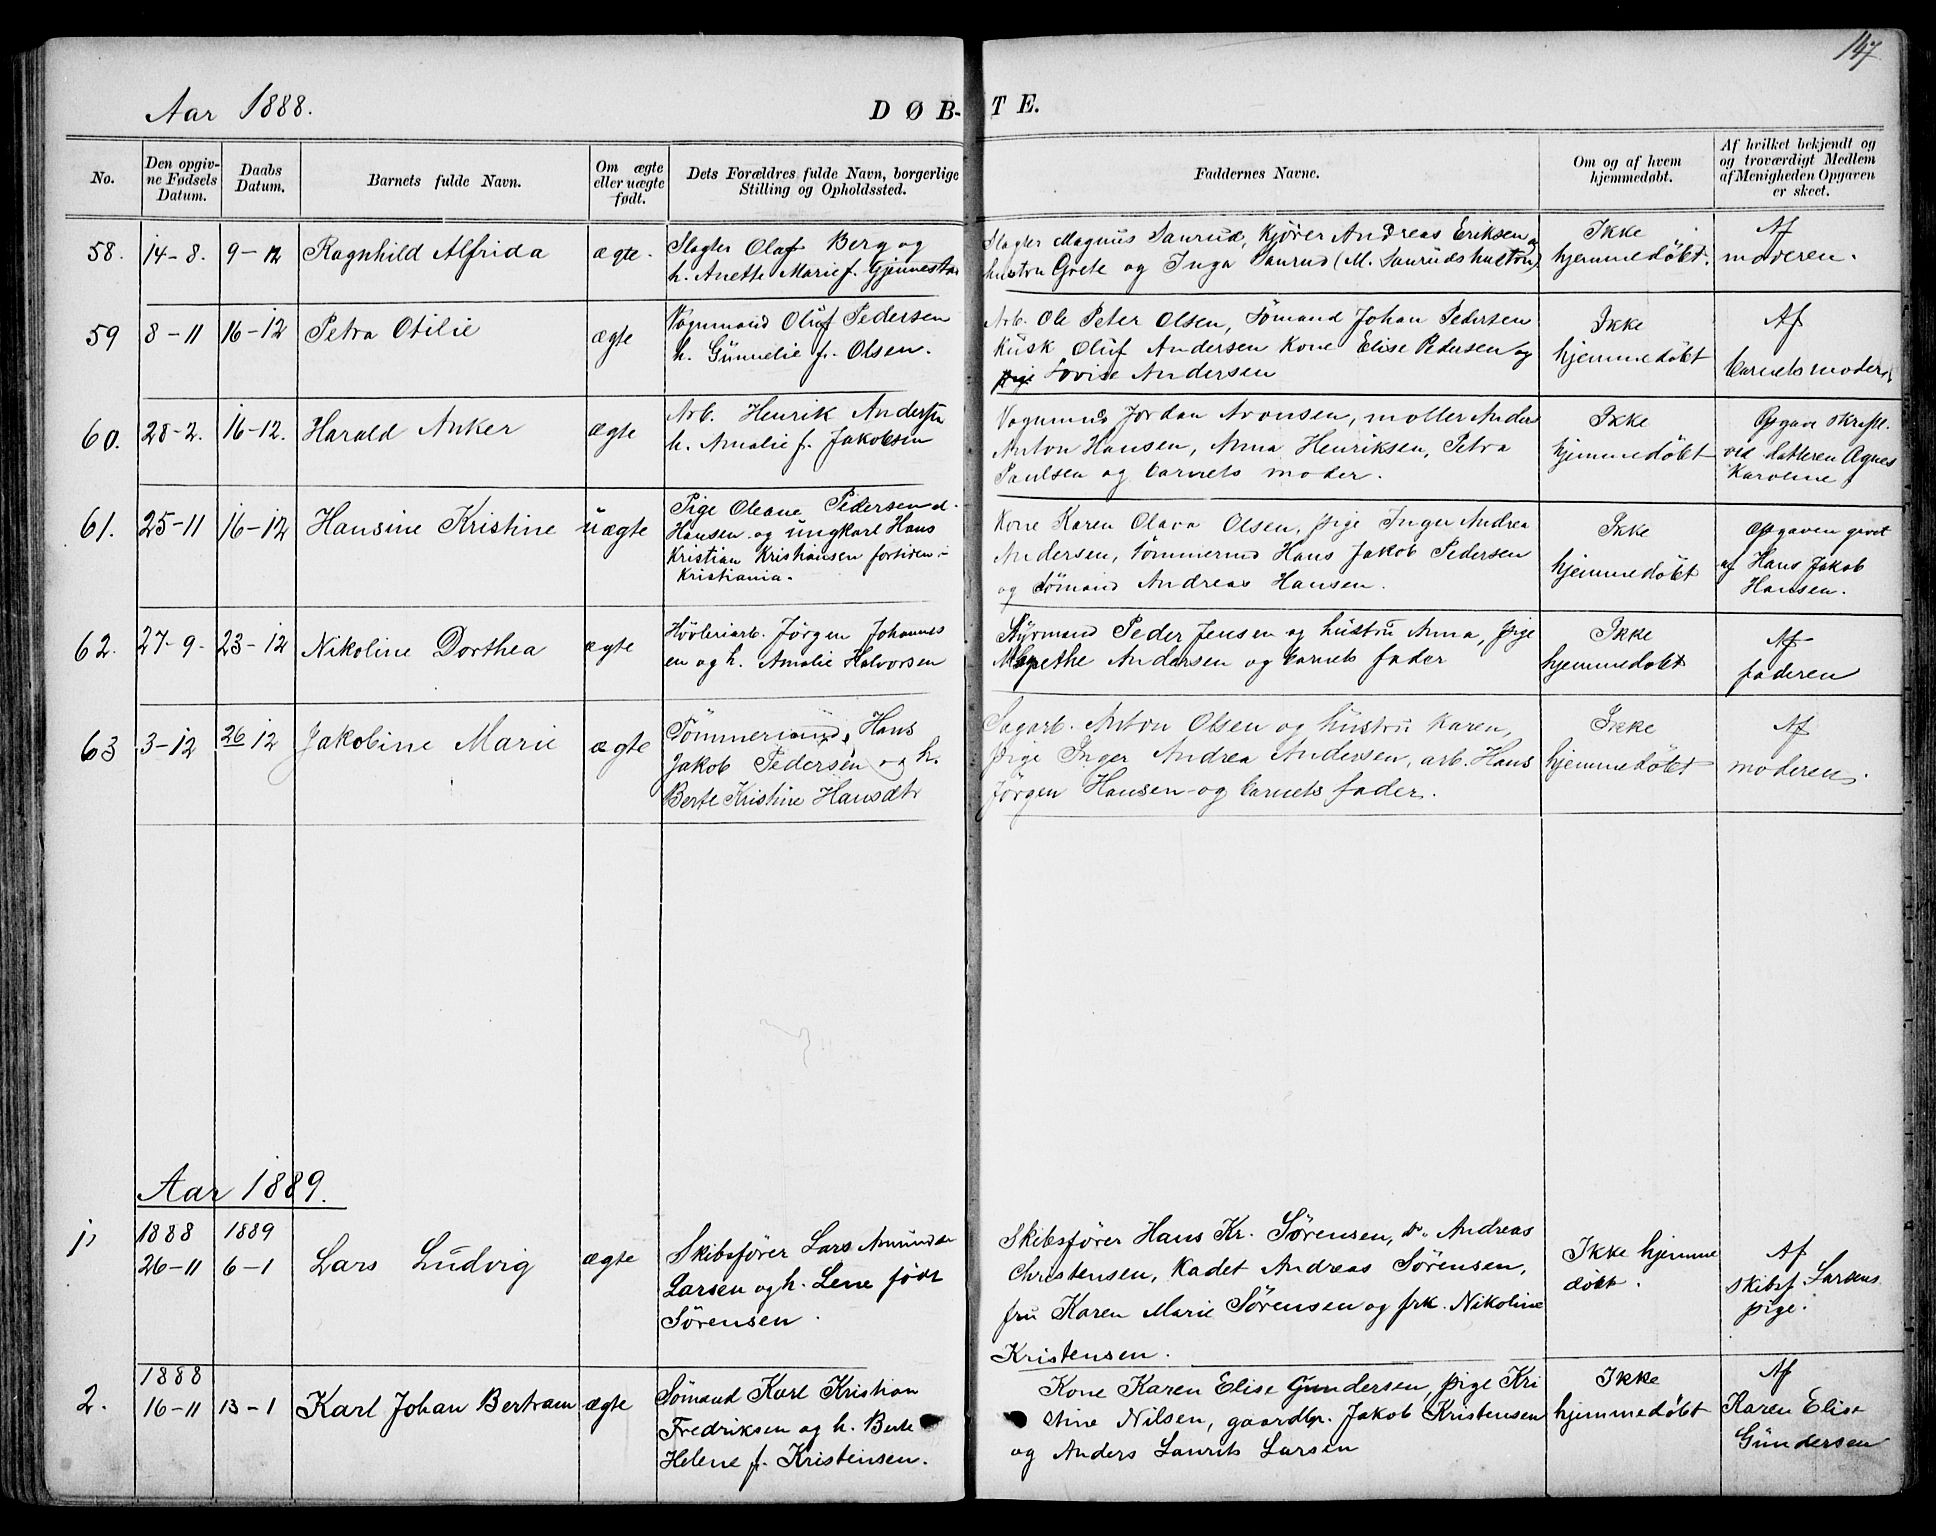 147
Aar 1888.
DØB-TE.
No.
Den opgiv-
ne Fødsels
Datum.
Daabs
Datum.
Barnets fulde Navn.
Om ægte
eller uægte
født.
Dets Forældres fulde Navn, borgerlige
Stilling og Opholdssted.
Faddernes Navne.
Om og af hvem
hjemmedøbt.
Af hvilket bekjendt og
og troværdigt Medlem
af Menigheden Opgaven
er skeet.
58. 14-8. 9-12 Ragnhild Alfrida ægte.
Slagter Olaf Berg og
h. Anette Marie f. Gjennestad
Slagter Magnus Saurud, Kjører Andreas Eriksen og
hustru Grete og Inga Saurud (M. Sauruds hustru)
Ikke
hjemmedöbt.
Af
moderen.
59 8-11 16-12 Petra Otilie ægte
Vognmand Oluf Pedersen
h. Gunnelie f. Olsen.
Arb. Ole Peter Olsen, Sømand Johan Pedersen
Kusk Oluf Andersen Kone Elise Pedersen og
pige Lovise Andersen
Ikke
hjemmedöbt
Af
barnets moder
60. 28-2. 16-12. Harald Anker ægte
Arb. Henrik Andersen
h. Amalie f. Jakobsen
Vognmd Jordan Aronsen, møller Anders
Anton Hansen, Anna Henriksen, Petra
Paulsen og barnets moder.
Ikke
hjemmedöbt
Opgave skriftl.
ved datteren Agnes
Karoline
61. 25-11 16-12 Hansine Kristine uægte
Pige Oleane Pedersen d.
Hansen og ungkarl Hans
Kristian Kristiansen fortiden i
Kristiania.
Kone Karen Olava Olsen, pige Inger Andrea
Andersen, tømmermd Hans Jakob Pedersen
og Sømand Andreas Hansen.
Ikke
hjemmedöbt
Opgaven givet
af Hans Jakob
Hansen.
62. 27-9. 23-12 Nikoline Dorthea ægte
Høvleriarb. Jørgen Johannes
en og h. Amalie Halvorsen
Styrmand Peder Jensen og hustru Anna, pige
Margethe Andersen og barnets fader
Ikke
hjemmedöbt
Af
faderen
63 3-12 26-12 Jakobine Marie ægte
Tømmermand Hans
Jakob Pedersen og h.
Berte Kristine Hansdtr
Sagarb. Anton Olsen og hustru Karen,
pige Inger Andrea Andersen, arb. Hans
Jørgen Hansen og barnets fader.
Ikke
hjemmedöbt
Af
moderen.
Aar 1889.
1888 1889
1, 26-11 6-1 Lars Ludvig ægte
Skibsfører Lars Amundse
Larsen og h. Lene født
Sørensen.
Skibsfører Hans Kr. Sørensen, do. Andreas
Christensen, Kadet Andreas Sørensen,
fru Karen Marie Sørensen og frk. Nikoline
Kristensen.
Ikke hjemme
döbt.
Af
skibsf. Larsens
pige.
1888
2. 16-11 13-1 Karl Johan Bertram ægte
Sømand Karl Kristian
Fredriksen og h. Berte
Helene f. Kristensen.
Kone Karen Elise Gundersen, pige Kri
stine Nilsen, gaardbr. Jakob Kristensen
og Anders Laurits Larsen
Ikke
hjemmedöbt
Af
Karen Elise
Gundersen